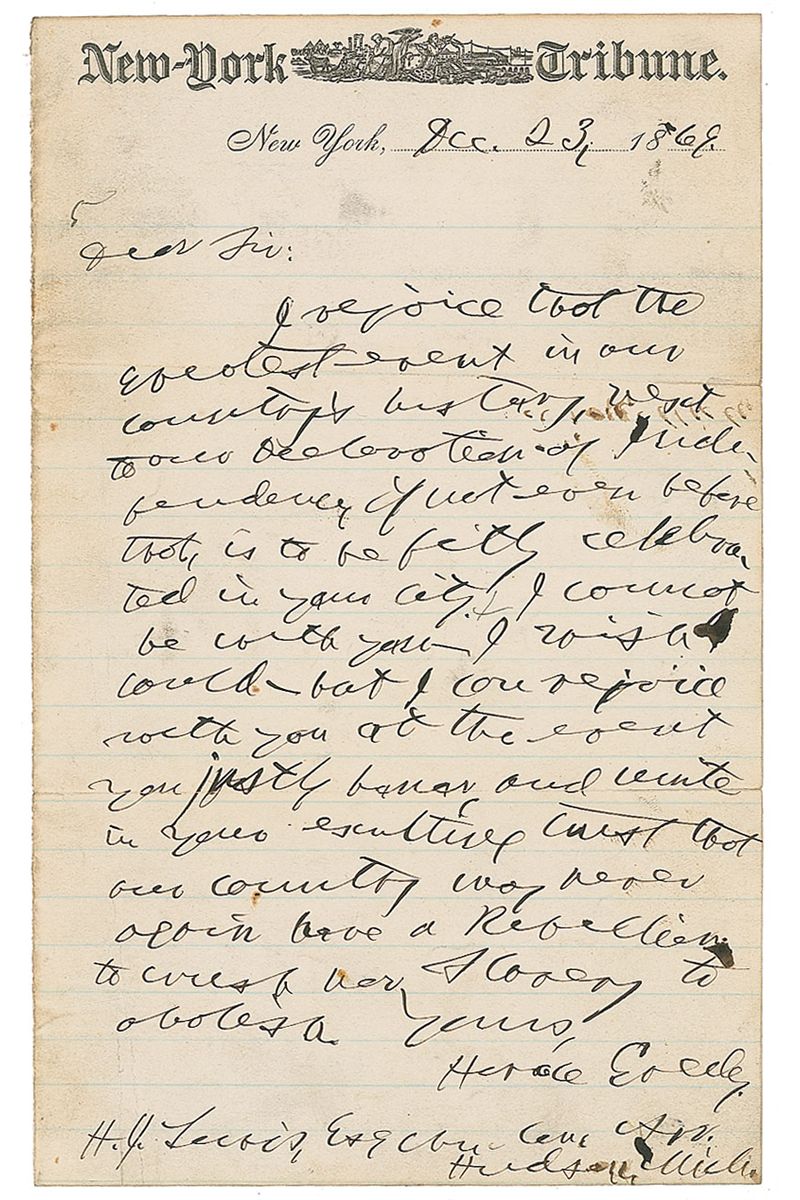 New-York Tribune.
New York, Dec. 23, 1869.
Dear Sir:
I rejoice that the
greatest event in our
country's history, next
to our Declaration of Inde-
pendence, if not even before
that, is to be fitly celebra-
ted in your city. I cannot
be with you—I wish I
could—but I can rejoice
with you at the event
you justly honor, and unite
in your exulting trust that
our country may never
again have a Rebellion
to crush nor Slavery to
abolish. Yours,
Horace Greeley.
H. J. Lewis, Esq. Com.
Hudson, Mich.